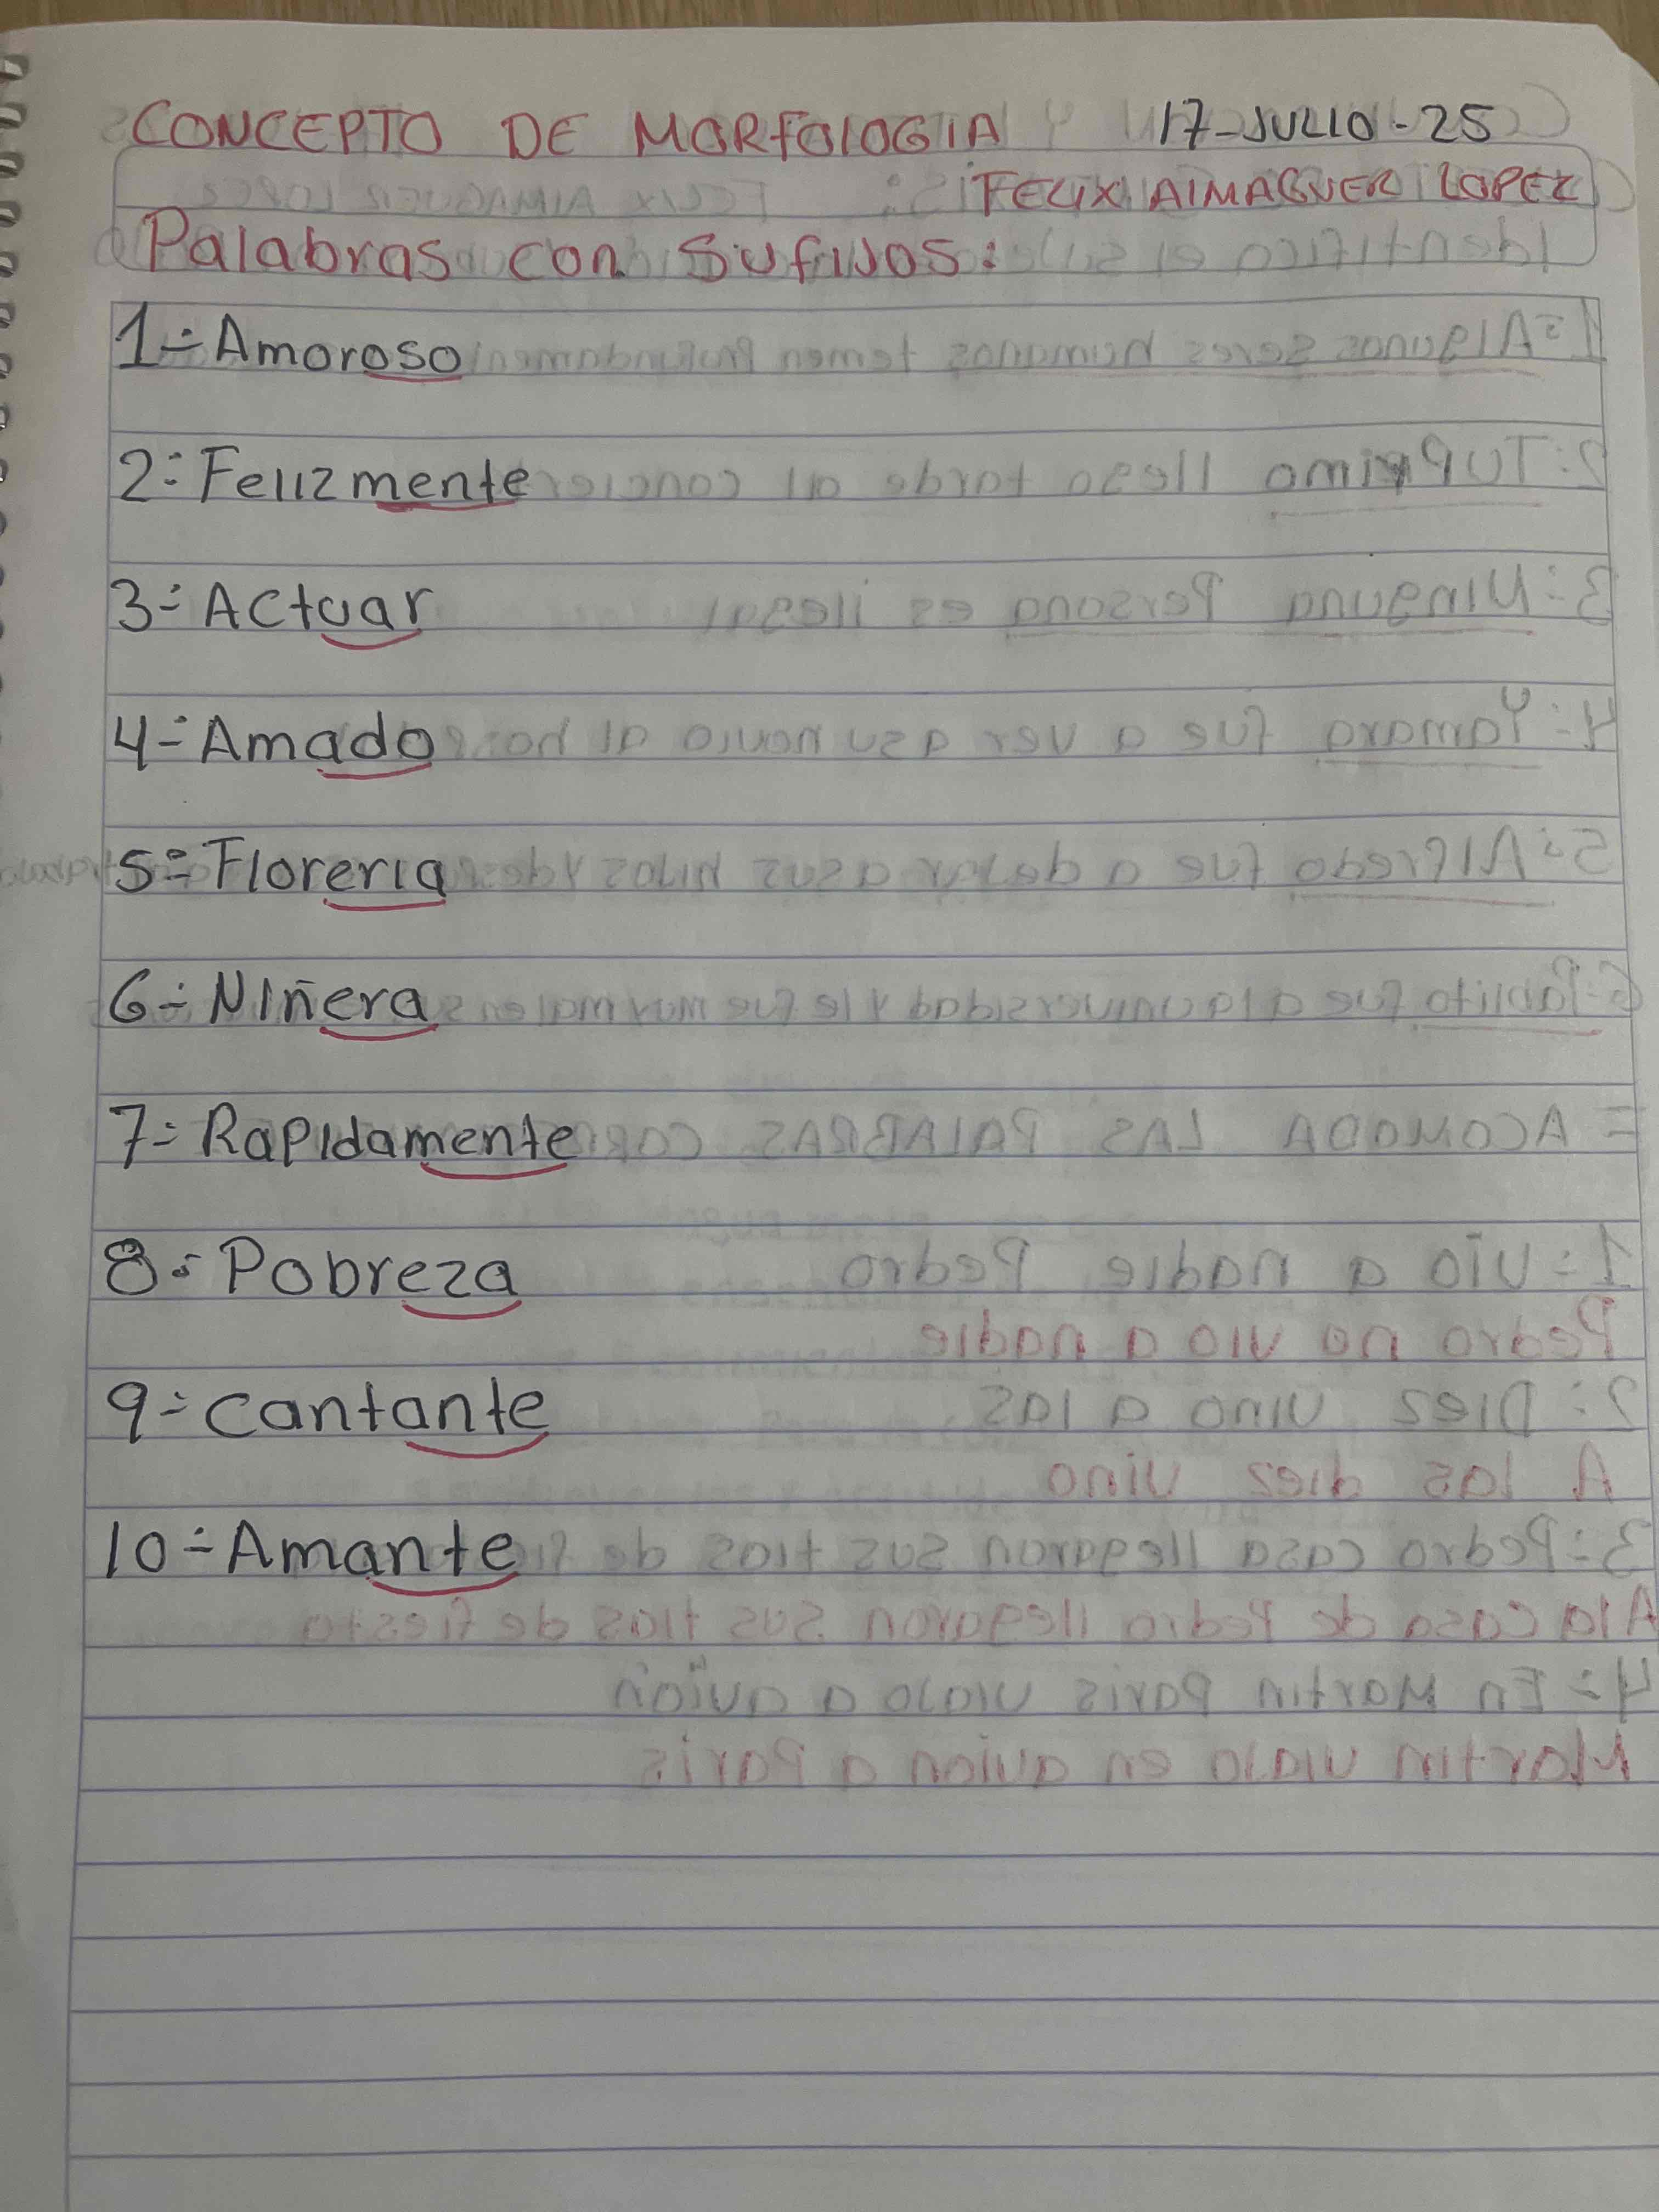 CONCEPTO DE MORFOLOGIA 17-JULIO-25
FELIX AlMAGUER LOPEZ
Palabras con Sufijos:
1÷Amoroso
2÷Felizmente
3÷Actuar
4÷Amado
5÷Floreria
6÷Niñera
7÷Rapidamente
8÷Pobreza
9÷cantante
10÷Amante